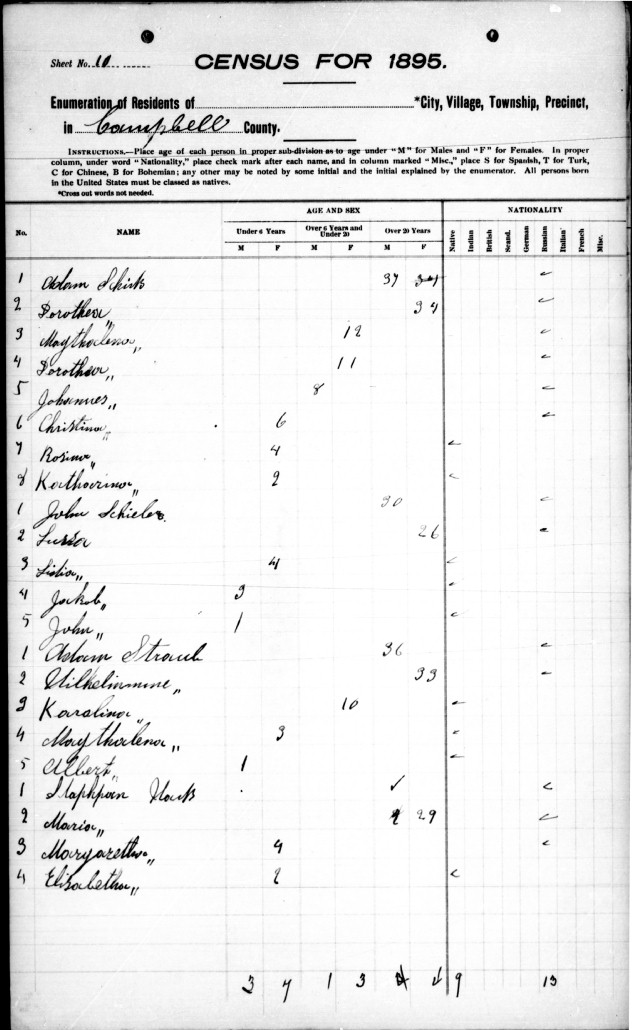 Sheet No. 10
CENSUS FOR 1895.
Enumeration of Residents of *City, Village, Township, Precinct,
in Campbell County.
INSTRUCTIONS.—Place age of each person in proper sub-division as to age under "M" for Males and "F" for Females. In proper
column, under word "Nationality," place check mark after each name, and in column marked "Misc.," place S for Spanish, T for Turk,
C for Chinese, B for Bohemian; any other may be noted by some initial and the initial explained by the enumerator. All persons born
in the United States must be classed as natives.
*Cross out words not needed.
AGE AND SEX NATIONALITY
No. NAME Under 6 Years Over 6 Years and Under 20 Over 20 Years Native Indian British Scand. German Russian Italian French Misc.
M F M F M F
1 Adam Schirk 37 34 ✓
2 Dorothea " 34 ✓
3 Maythalena " 12 ✓
4 Dorothea " 11 ✓
5 Johannes " 8 ✓
6 Christina " 6 ✓
7 Rosina " 4 ✓
8 Katharina " 2 ✓
1 John Schieler 30 ✓
2 26 ✓
3 Lidia " 4 ✓
4 Jakob " 3 ✓
5 John " 1 ✓
1 Adam Straub 36 ✓
2 Wilhelmmine " 33 ✓
3 Karalina " 10 ✓
4 Maythalena " 3 ✓
5 Albert " 1 ✓
1 ✓ ✓
2 Maria " 29 ✓
3 Maryaretha " 4 ✓
4 Elisabetha " 2 ✓
3 7 1 3 4 9 13